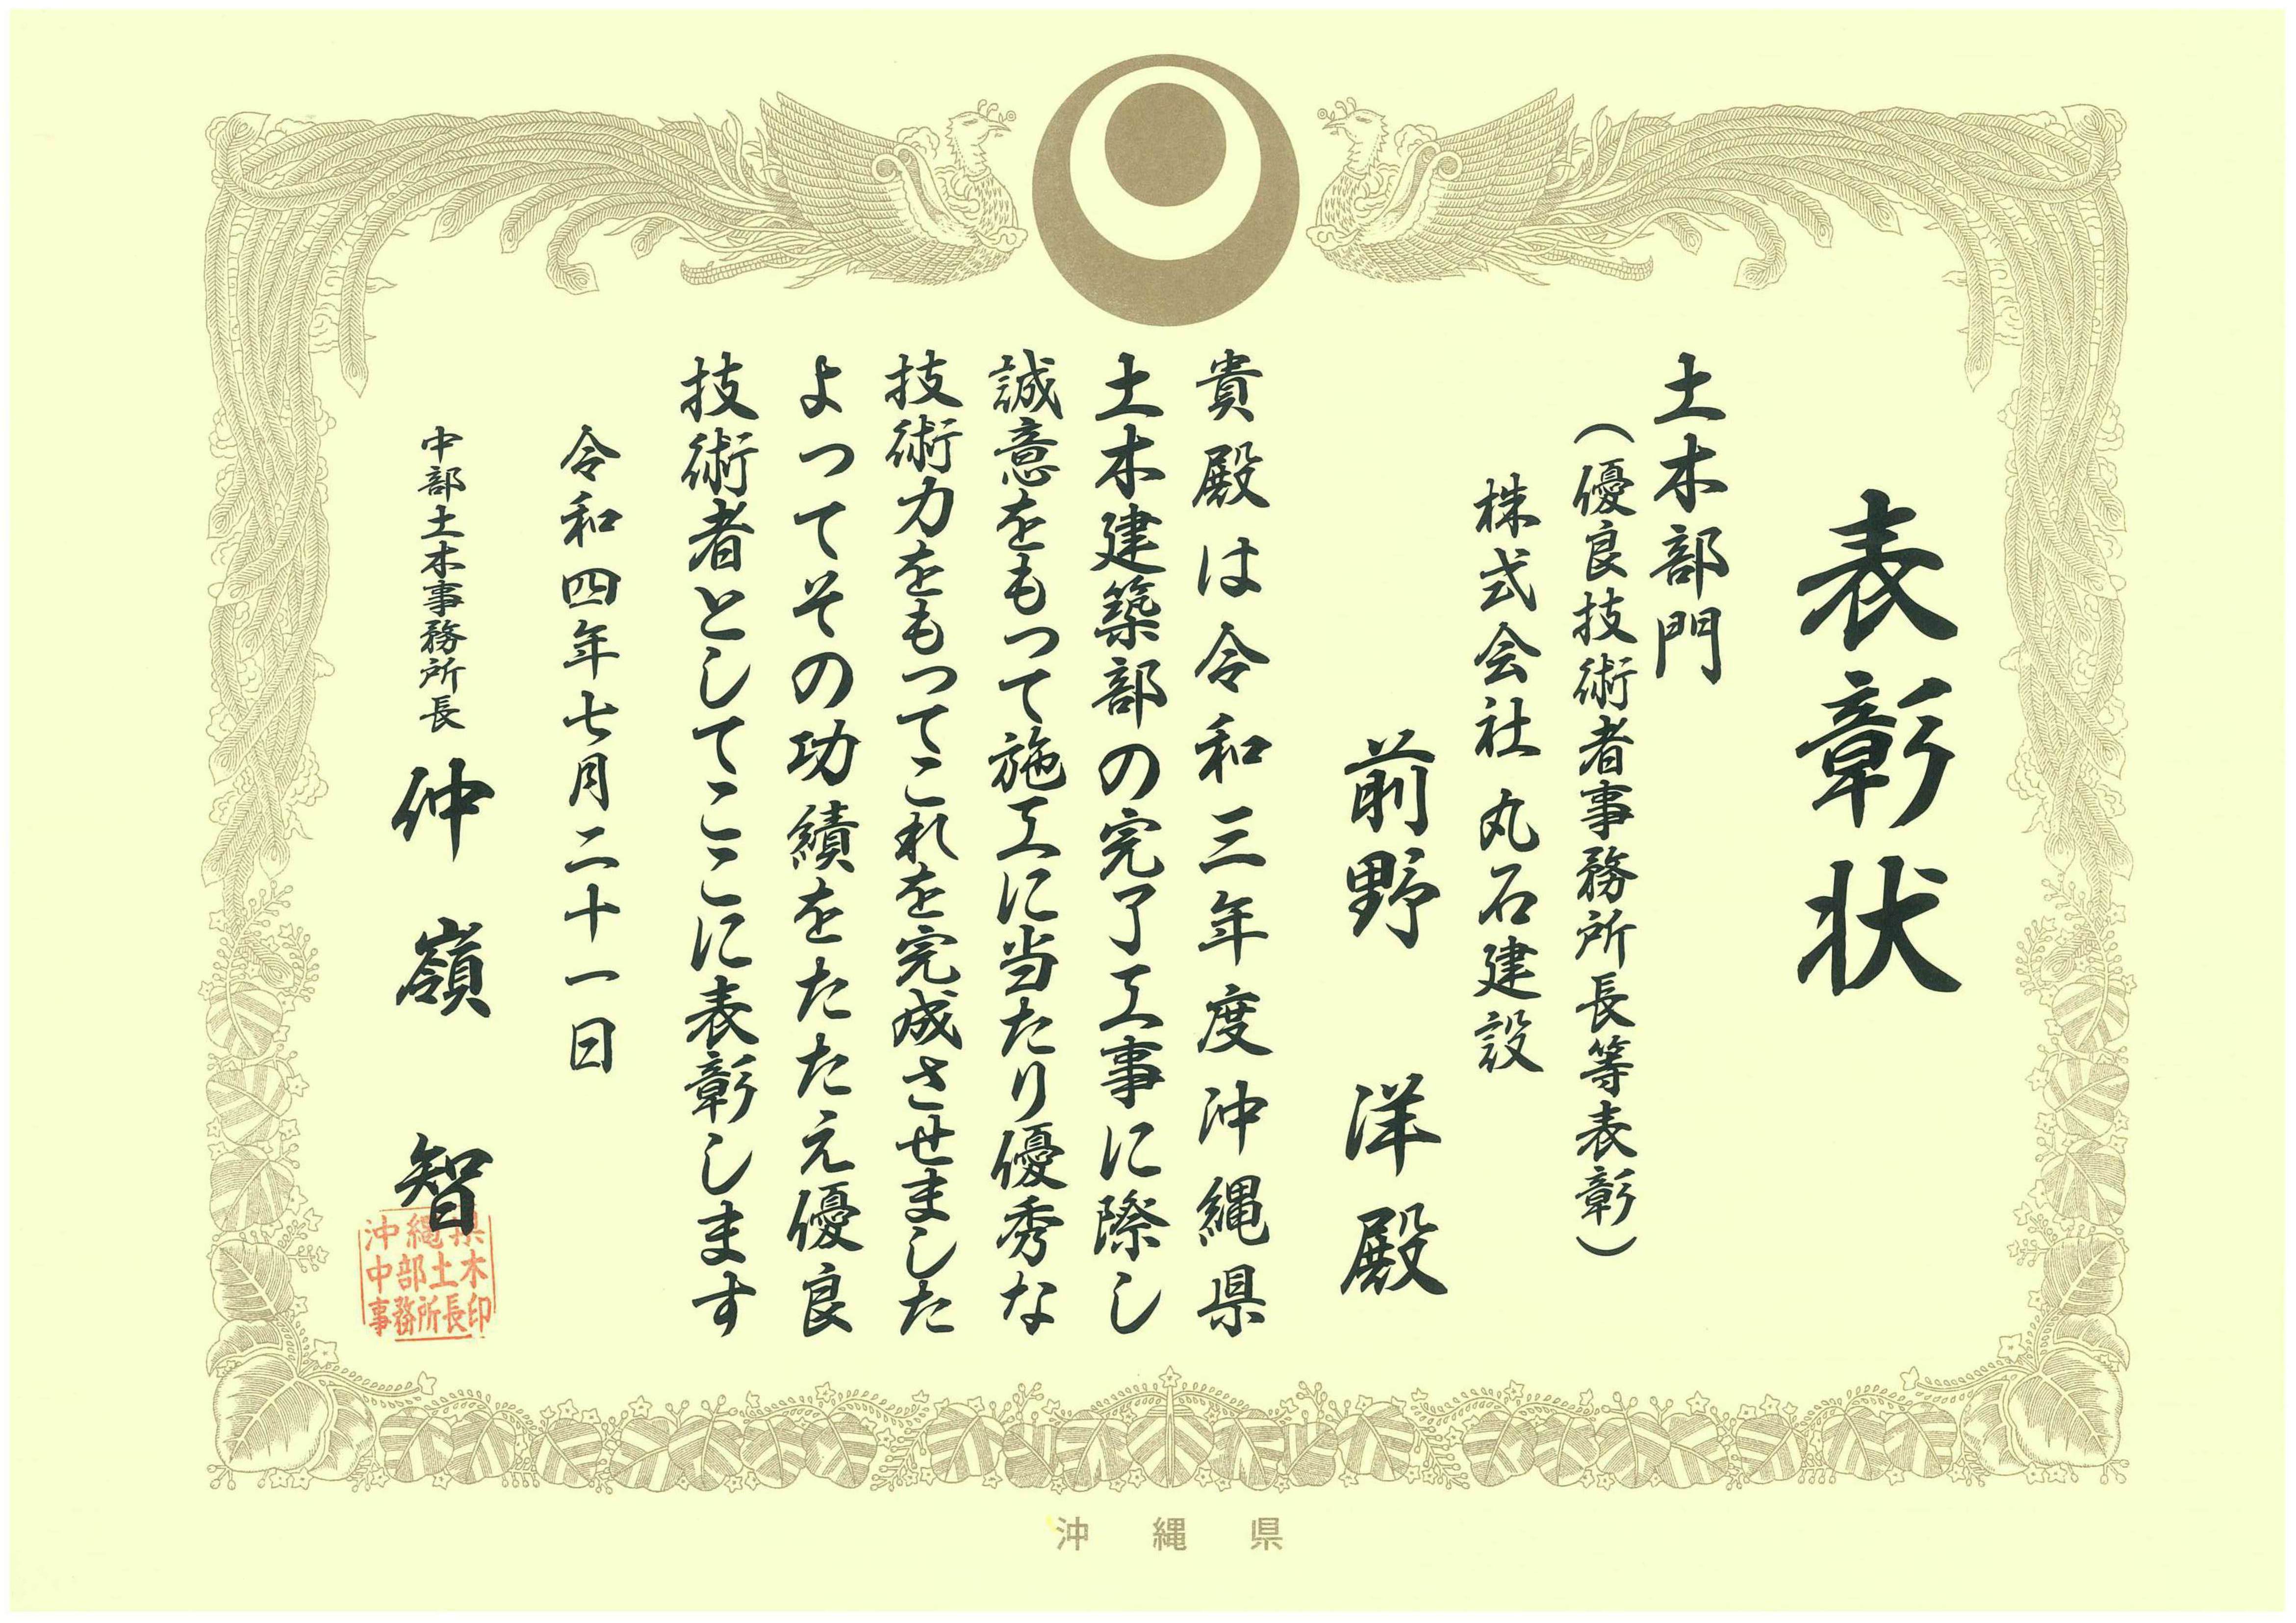 表彰状
土木部門
（優良技術者事務所長等表彰）
株式会社 丸石建設
前野 洋殿
貴殿は令和三年度沖縄県
土木建築部の完了工事に際し
誠意をもって施工に当たり優秀な
技術力をもってこれを完成させました
よってその功績をたたえ優良
技術者としてここに表彰します
令和四年七月二十一日
中部土木事務所長 仲嶺 智
沖縄県
中部土木
事務所長印
沖縄県